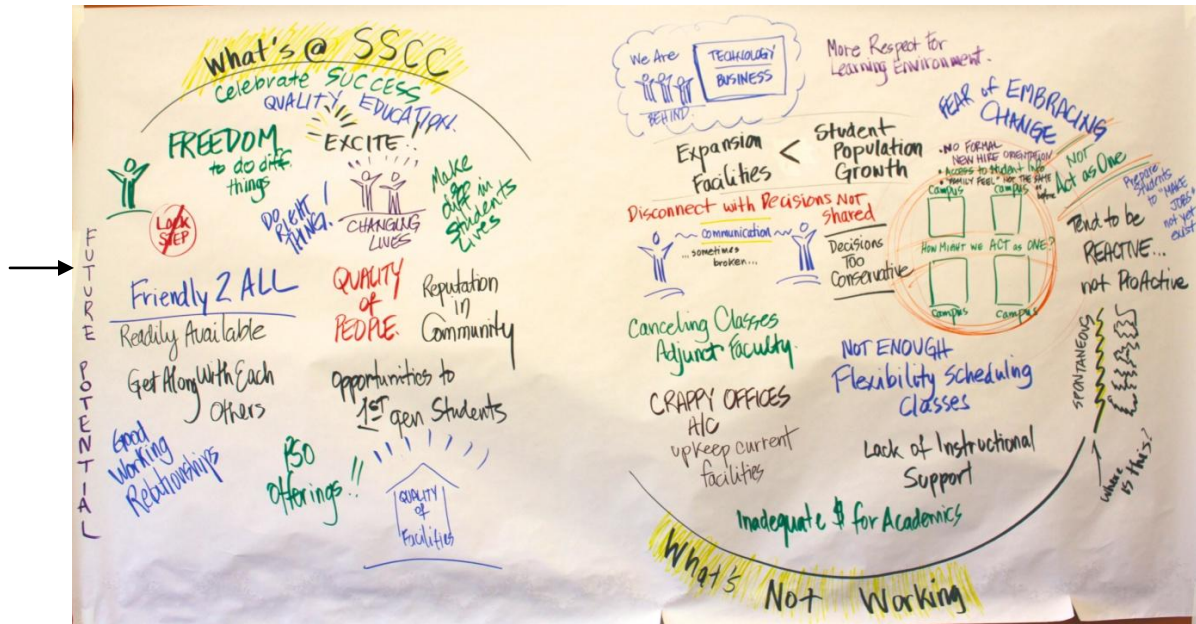 What's @ SSCC
Celebrate SUCCESS
QUALITY EDUCATION!
FREEDOM
to do diff
things
EXCITE!
Make
diff in
Students
Lives
LOCK
STEP
DO
RIGHT
THING!
CHANGING
LIVES
FUTURE POTENTIAL
Friendly 2 ALL
Readily Available
QUALITY
of
PEOPLE.
Reputation
in
Community
Get Along With Each
Others
Opportunities to
1ST gen Students
Good
Working
Relationships
PSO
Offerings!!
QUALITY
of
Facilities
We Are
BEHIND.
TECHNOLOGY
BUSINESS
More Respect For
Learning Environment.
FEAR of EMBRACING
CHANGE
Expansion
Facilities
<
Student
Population
Growth
• NO FORMAL
NEW HIRE ORIENTATION
• Access to Student Info
• "FAMILY FEEL" NOT THE SAME as before
NOT
Act as One
Prepare
Students
to "MAKE
JOBS"
not yet
exist
Disconnect with Decisions NOT
shared
communication
...sometimes
broken...
Decisions
Too
Conservative
campus
campus
HOW MIGHT WE ACT as ONE?
campus
campus
Tend to be
REACTIVE...
not ProActive
Canceling Classes
Adjunct Faculty.
NOT ENOUGH
Flexibility Scheduling
Classes
SPONTANEOUS
where
is this?
CRAPPY OFFICES
A/C
upkeep current
facilities
Lack of Instructional
Support
Inadequate $ for Academics
What's Not Working